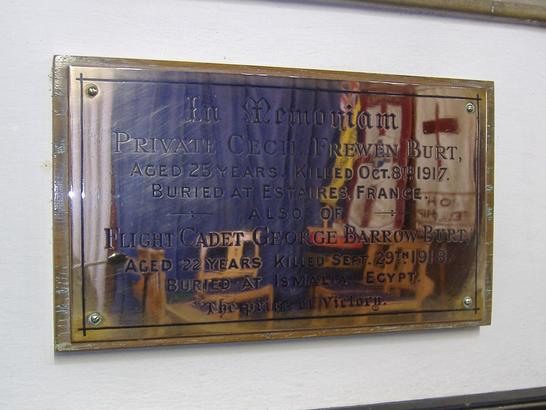 In Memoriam
PRIVATE CECIL FREWEN BURT,
AGED 25 YEARS. KILLED OCT. 8TH 1917.
BURIED AT ESTAIRES, FRANCE.
ALSO OF
FLIGHT CADET GEORGE BARROW BURT,
AGED 22 YEARS. KILLED SEPT. 29TH 1918.
BURIED AT ISMALIA, EGYPT.
"The price of Victory.